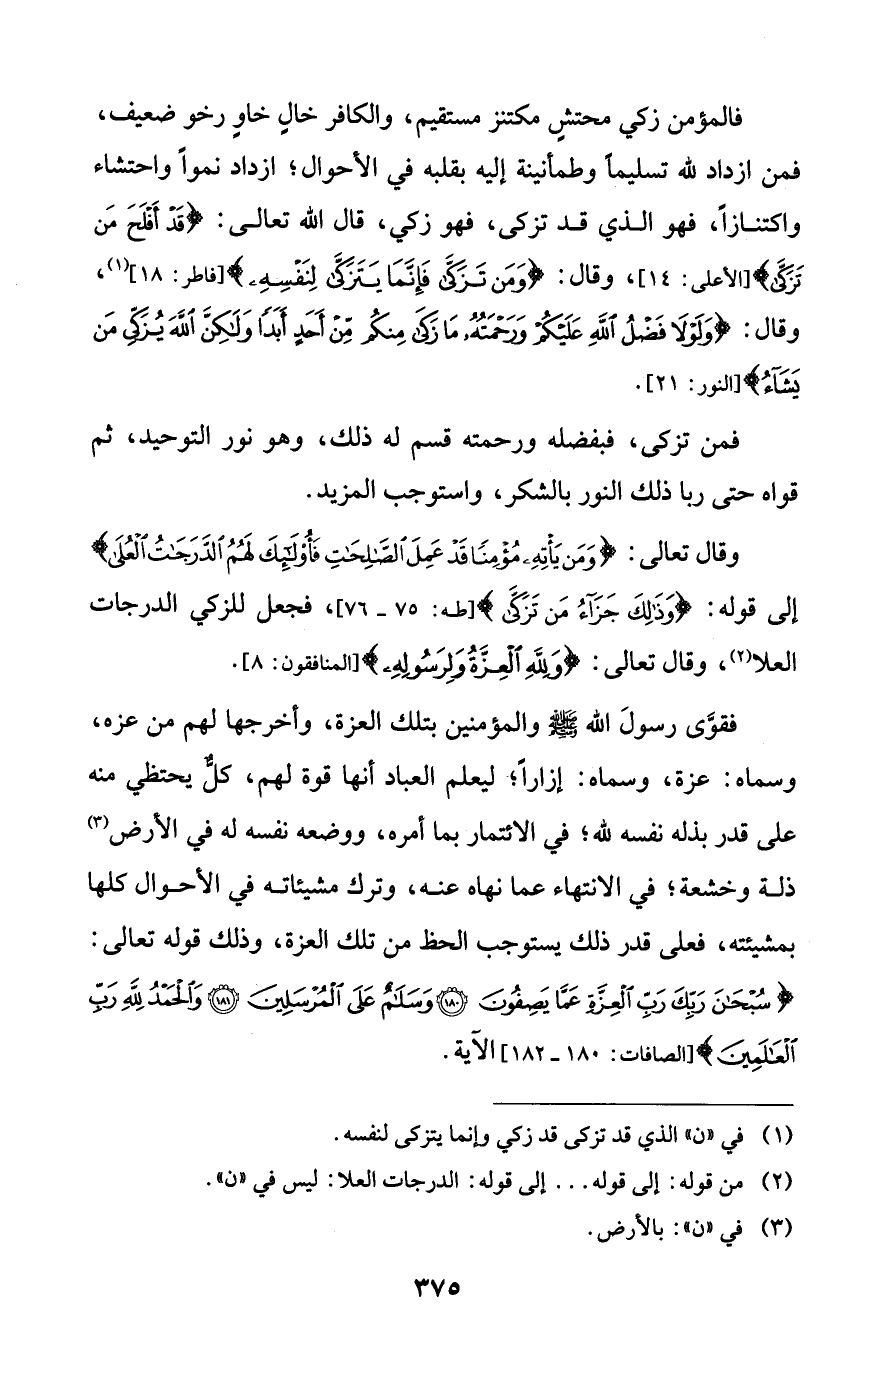 فالمؤمن زكي محتشٍ مكتنز مستقيم، والكافر خالٍ خاوٍ رخو ضعيف،
فمن ازداد لله تسليماً وطمأنينة إليه بقلبه في الأحوال؛ ازداد نمواً واحتشاء
واكتنـازاً، فهو الـذي قـد تزكى، فهو زكي، قال الله تعالـى: ﴿قَدْ أَفْلَحَ مَن
تَزَكَّىٰ﴾[الأعلى: ١٤]، وقال: ﴿وَمَن تَزَكَّىٰ فَإِنَّمَا يَتَزَكَّىٰ لِنَفْسِهِۦ﴾[فاطر: ١٨](١)،
وقال: ﴿وَلَوْلَا فَضْلُ ٱللَّهِ عَلَيْكُمْ وَرَحْمَتُهُۥ مَا زَكَىٰ مِنكُم مِّنْ أَحَدٍ أَبَدًا وَلَٰكِنَّ ٱللَّهَ يُزَكِّى مَن
يَشَآءُ﴾[النور: ٢١].
فمن تزكى، فبفضله ورحمته قسم له ذلك، وهو نور التوحيد، ثم
قواه حتى ربا ذلك النور بالشكر، واستوجب المزيد.
وقال تعالى: ﴿وَمَن يَأْتِهِۦ مُؤْمِنًا قَدْ عَمِلَ ٱلصَّٰلِحَٰتِ فَأُو۟لَٰٓئِكَ لَهُمُ ٱلدَّرَجَٰتُ ٱلْعُلَىٰ﴾
إلى قوله: ﴿وَذَٰلِكَ جَزَآءُ مَن تَزَكَّىٰ﴾[طه: ٧٥ ـ ٧٦]، فجعل للزكي الدرجات
العلا(٢)، وقال تعالى: ﴿وَلِلَّهِ ٱلْعِزَّةُ وَلِرَسُولِهِۦ﴾[المنافقون: ٨].
فقوَّى رسولَ الله ﷺ والمؤمنين بتلك العزة، وأخرجها لهم من عزه،
وسماه: عزة، وسماه: إزاراً؛ ليعلم العباد أنها قوة لهم، كلٌّ يحتظي منه
على قدر بذله نفسه لله؛ في الائتمار بما أمره، ووضعه نفسه له في الأرض(٣)
ذلـة وخشعة؛ في الانتهاء عما نهاه عنـه، وترك مشيئاتـه في الأحـوال كلها
بمشيئته، فعلى قدر ذلك يستوجب الحظ من تلك العزة، وذلك قوله تعالى:
﴿سُبْحَٰنَ رَبِّكَ رَبِّ ٱلْعِزَّةِ عَمَّا يَصِفُونَ ۝١٨٠ وَسَلَٰمٌ عَلَى ٱلْمُرْسَلِينَ ۝١٨١ وَٱلْحَمْدُ لِلَّهِ رَبِّ
ٱلْعَٰلَمِينَ﴾[الصافات: ١٨٠ ـ ١٨٢] الآية.
(١) في «ن» الذي قد تزكى قد زكي وإنما يتزكى لنفسه.
(٢) من قوله: إلى قوله... إلى قوله: الدرجات العلا: ليس في «ن».
(٣) في «ن»: بالأرض.
٣٧٥